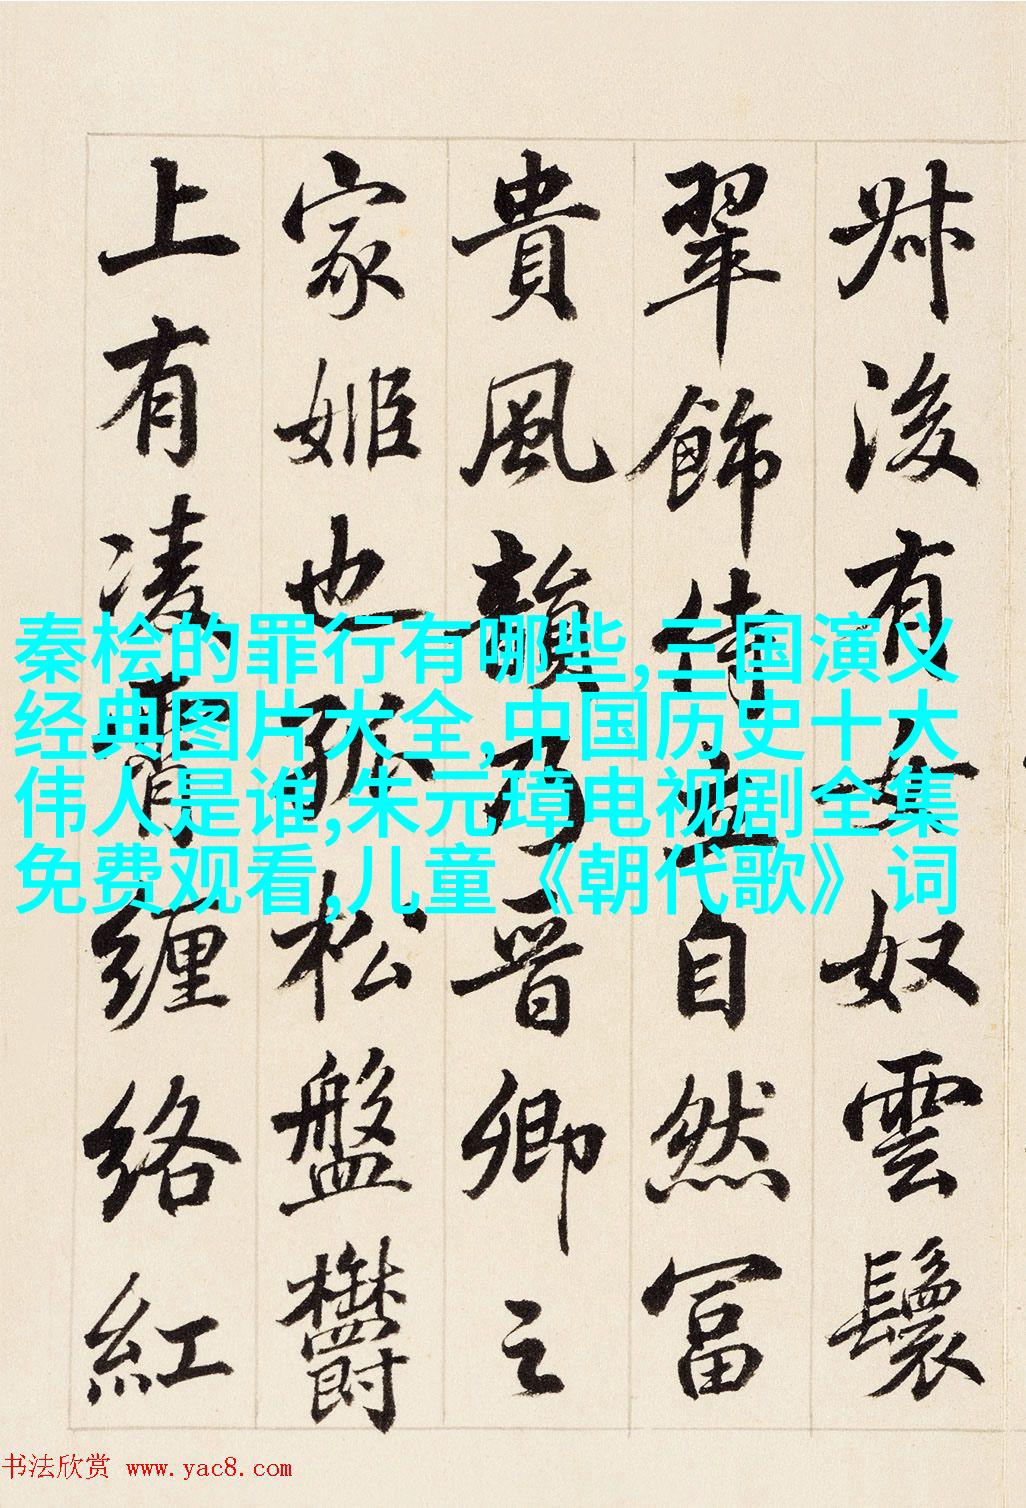 叔後有女奴雲鬟
翠飾侍立自然富
貴風韻乃晋卿之
家姬也孤松盤鬱
上有凌霄纏絡紅
秦桧的罪行有哪些,三国演义
经典图片大全,中国历史十大
伟人是谁,朱元璋电视剧全集
免费观看,儿童《朝代歌》词
书法欣赏 www.yac8.com